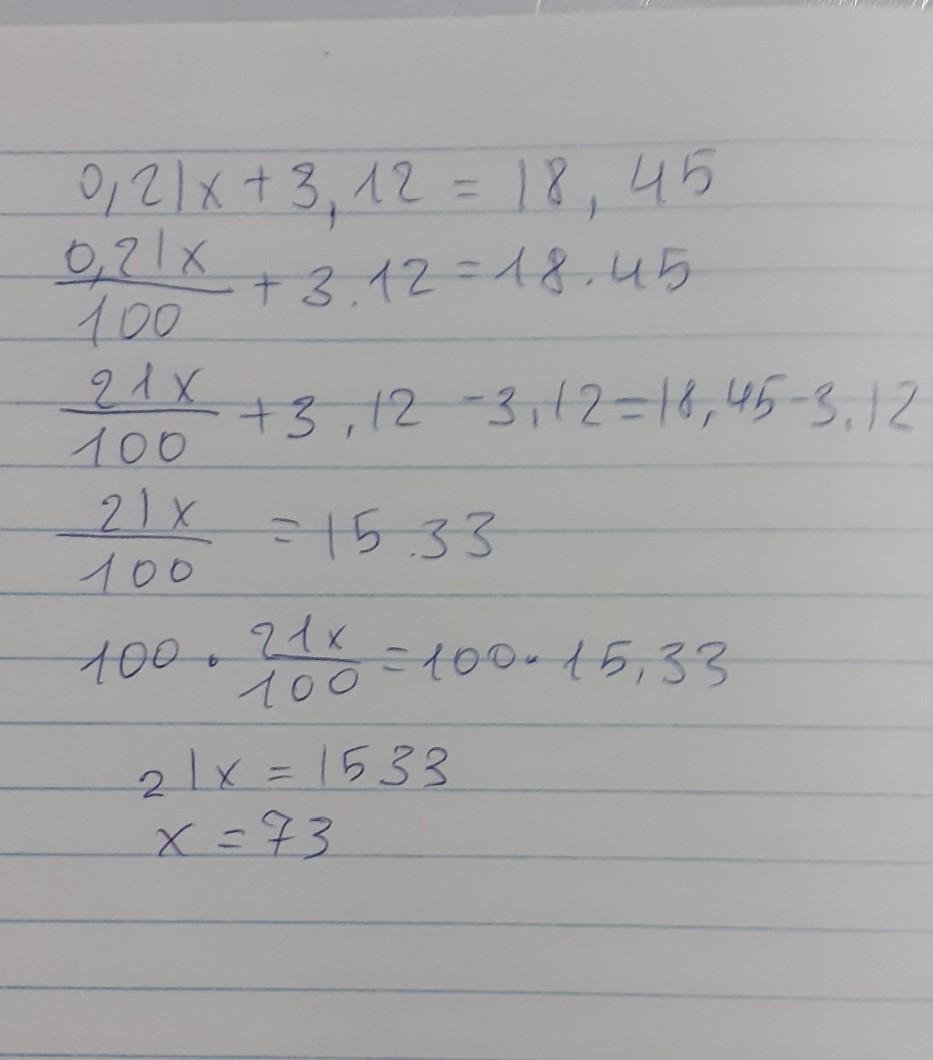 0,21x + 3,12 = 18,45
0,21x/100 + 3.12 = 18.45
21x/100 + 3,12 - 3,12 = 18,45 - 3,12
21x/100 = 15.33
100 · 21x/100 = 100 · 15,33
21x = 1533
x = 73